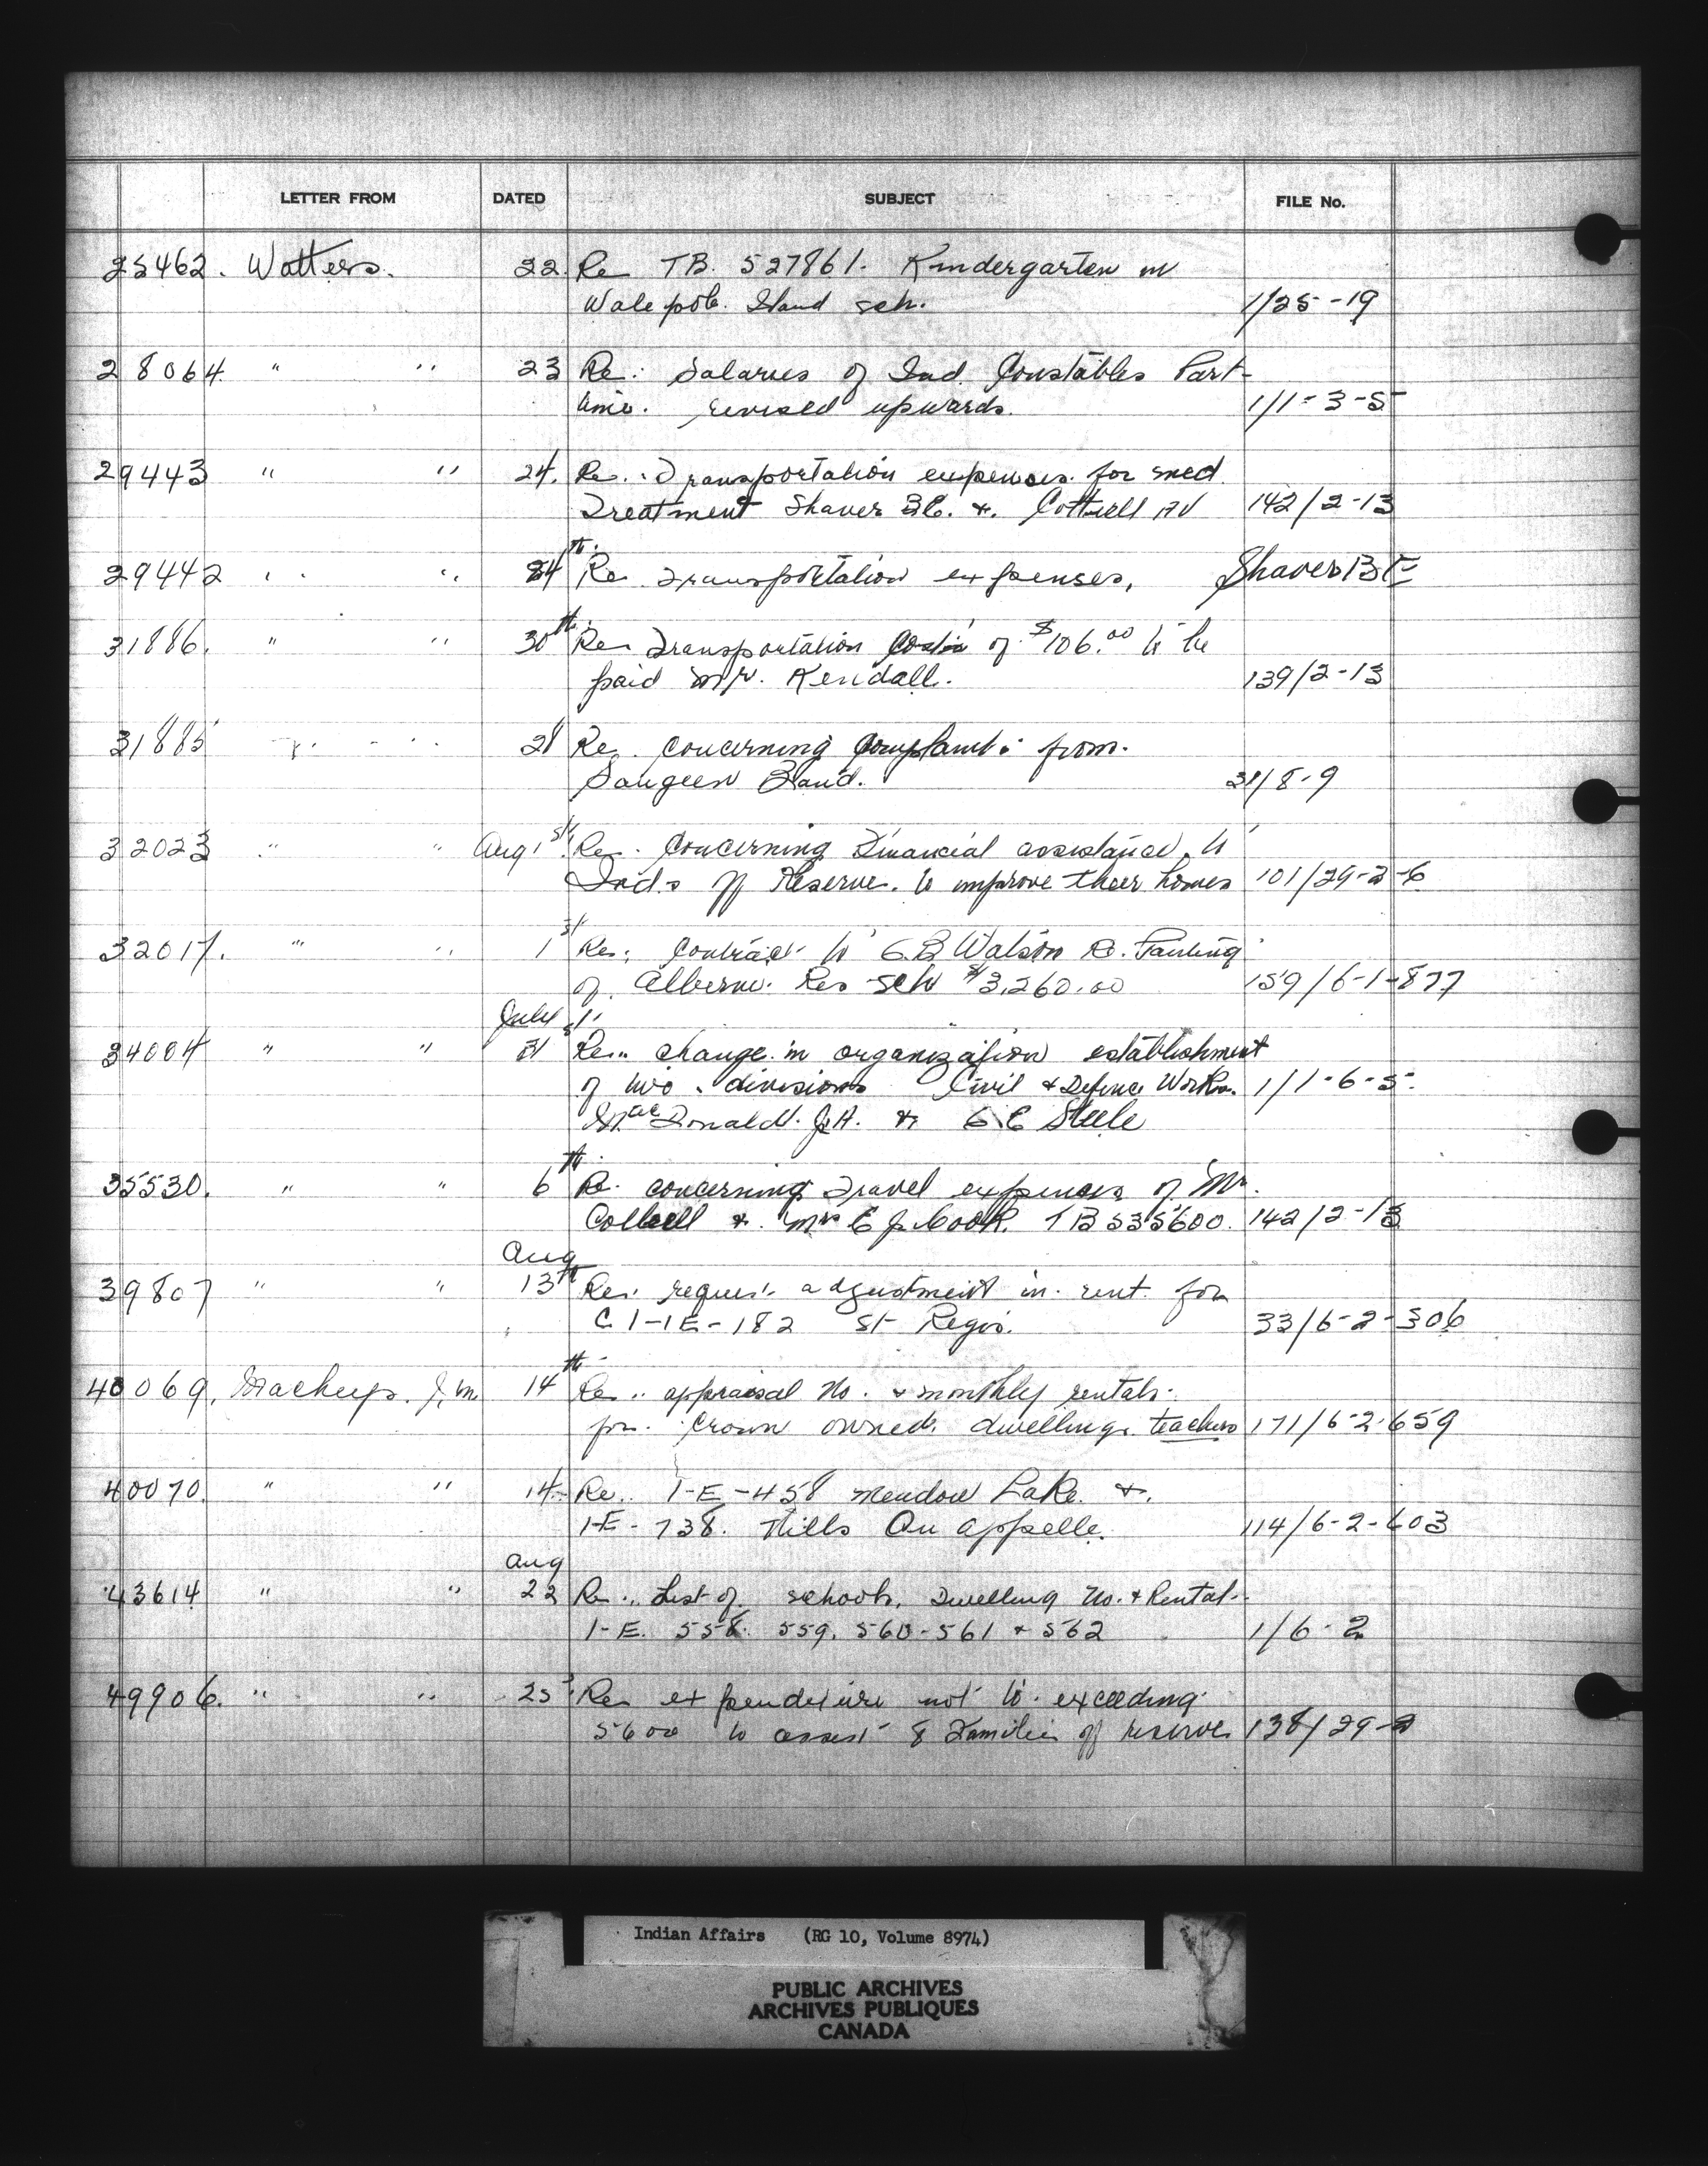 LETTER FROM DATED SUBJECT FILE No.
25462. Watters. 22. Re TB. 527861. Kindergarten in
Walepole. Island sch. 1/25-19
28064. " " 23 Re: Salaries of Ind. Constables Part-
time. revised upwards. 1/1-3-5
29443 " " 24. Re. Transportation expenses for med.
Treatment Shaver B.E. &. Cottrell AV 142/2-13
29442 " " 24th. Re Transportation expenses, Shaver B E
31886. " " 30th. Re Transportation of $106.00 to be
paid Mr. Kendall. 139/2-13
31885 " " 28 Re. Concerning Complaint from.
Saugeen Band. 31/8-9
32023 " " Aug 1st. Re. Concerning Financial assistance to
Inds off Reserve. to improve their homes 101/29-2-6
32017. " " 1st Re: Contract to G.B Watson Re. Painting
of Alberni. Res Sch $3,260.00 159/6-1-877
July
34004 " " 31st Re.. change in organization establishment
of two divisions Civil & Defence Works. 1/1-6-5.
MacDonald. J.A. & G E Steele
35530. " " 6th. Re. concerning Travel expenses of Mr.
& Mrs E J. Cook. TB 535600. 142/2-13
Aug
39807 " " 13th Re: request adjustment in rent for
C. 1-1E-182 St Regis. 33/6-2-306
40069. J, M 14th Re.. appraisal No. & monthly rentals.
for. Crown owned. dwellings. teachers 171/6-2-659
40070. " " 14. Re.. 1-E-458 Meadow Lake. &.
1-E-738. Hills Qu appelle. 114/6-2-603
Aug
43614 " " 22 Re.. List of schools, Dwelling No. & Rental.
1-E. 558. 559. 560-561 & 562 1/6-2
49906. " " 25. Re expenditure not to exceeding
5600 to assist 8 Families off reserve 138/29-2
Indian Affairs (RG 10, Volume 8974)
PUBLIC ARCHIVES
ARCHIVES PUBLIQUES
CANADA